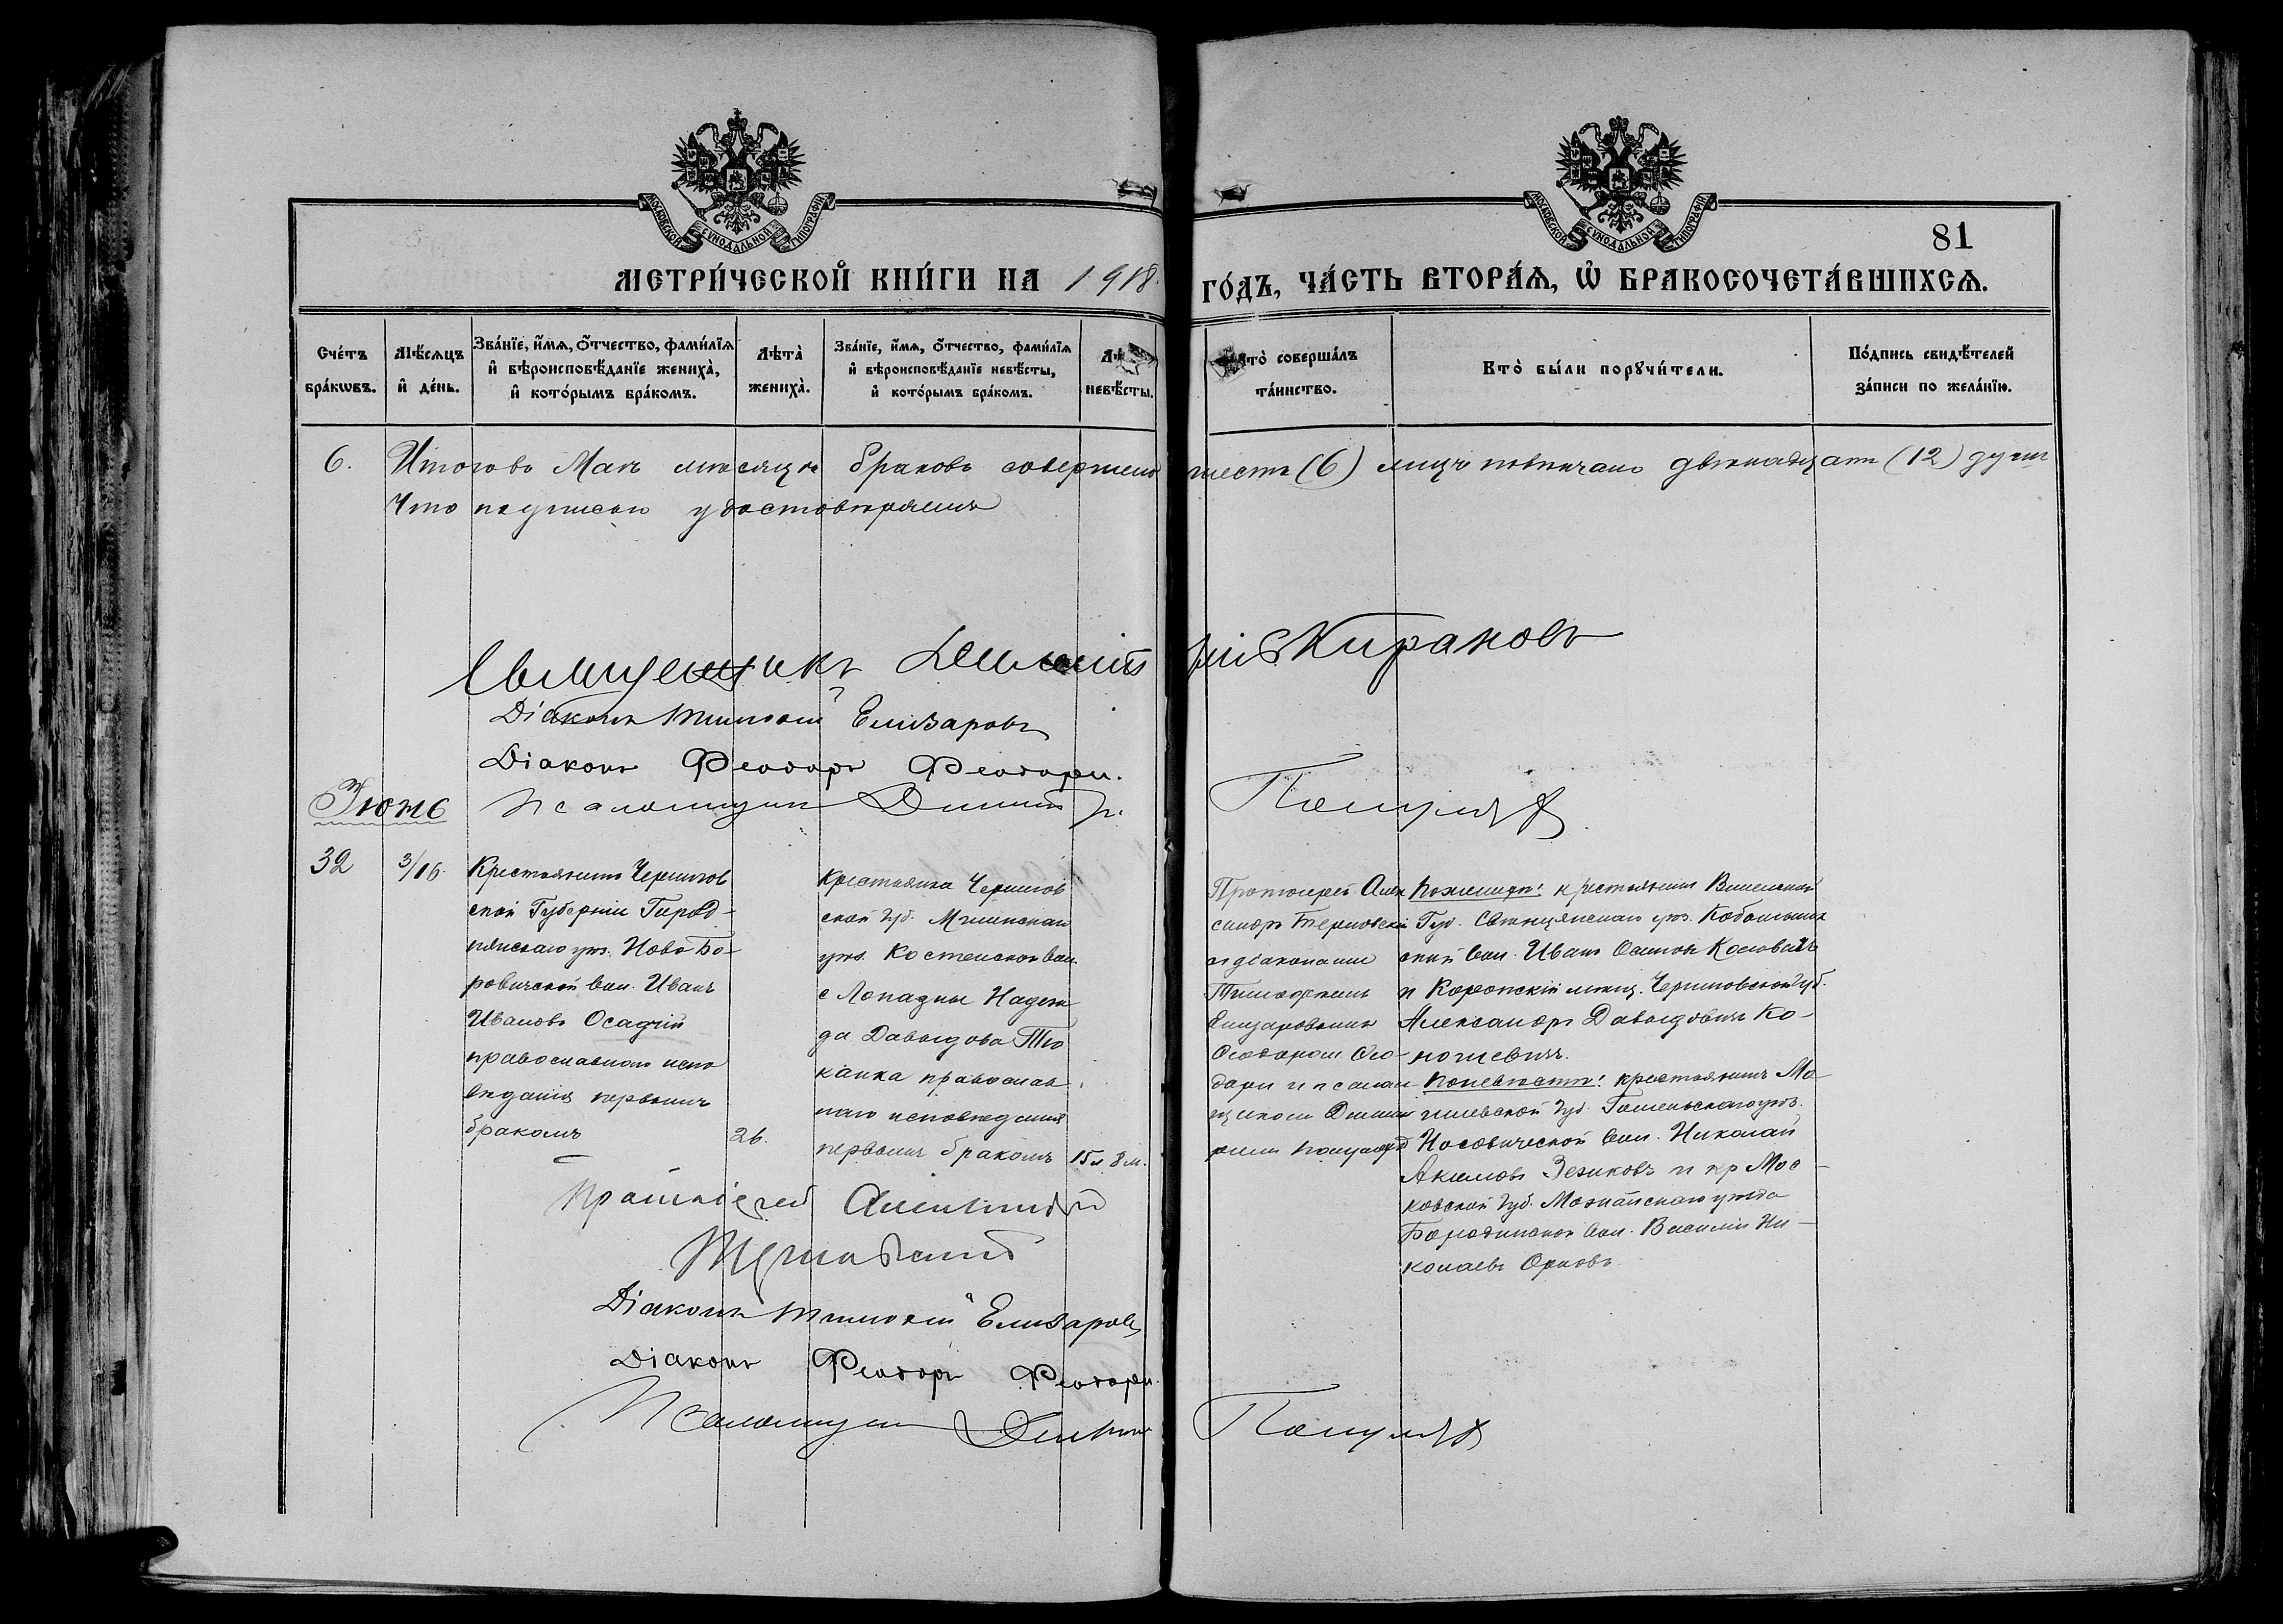 МОСКОВСКОЙ СѴНОДАЛЬНОЙ ТИПОГРАФІИ
МОСКОВСКОЙ СѴНОДАЛЬНОЙ ТИПОГРАФІИ
81
МЕТРИ́ЧЕСКОЙ КНИ́ГИ НА 1918
ГО́ДЪ, ЧА́СТЬ ВТОРА́Ѧ, Ѡ҆ БРАКОСОЧЕТА́ВШИХСѦ.
Сче́тъ бра́кѡвъ.
Мѣ́сѧцъ и҆ де́нь.
Зва́нїе, и҆́мѧ, ѻ҆́тчество, фами́лїѧ и҆ вѣроисповѣ́данїе жениха̀, и҆ кото́рымъ бра́комъ.
Лѣта̀ жениха̀.
Зва́нїе, и҆́мѧ, ѻ҆́тчество, фами́лїѧ и҆ вѣроисповѣ́данїе невѣ́сты, и҆ кото́рымъ бра́комъ.
невѣ́сты.
Кто̀ соверша́лъ та́инство.
Кто̀ бы́ли порꙋчи́тели.
По́дпись свидѣ́телей за́писи по жела́нїю.
6. Итого въ Маѣ мѣсяцѣ браковъ совершено шесть (6) лицъ повѣнчано двѣнадцать (12) душъ
Что подписью удостовѣряемъ
Священникъ Димитрій Кираковъ
Діаконъ Тимоѳей Елизаровъ
Діаконъ Феодоръ Феодори.
Псаломщикъ Димитр.
Іюнь
32
3/16.
Крестьянинъ Чернигов
ской Губерніи Город-
нянскаго уѣз. Ново Бо-
ровичской вол. Иванъ
Ивановъ Осадчій
православнаго испо
вѣданія первымъ
бракомъ
26.
Крестьянка Чернигов
ской Губ. Мглинскаго
уѣз. Костенской вол.
с Лопазны Надеж
да Давыдова Тю
канка православ
наго исповѣданія
первымъ бракомъ
15 л 8 м.
Протоіерей Алек
сандръ Терновскій
и діаконами
Тимофеемъ
Елизаровымъ
Феодоромъ Фео-
дори и псалом
щикомъ Димит
ріемъ
По женихѣ: крестьянинъ Виленской
Губ. Свѣнцянскаго уѣз. Кобыльник
ской вол. Иванъ Осиповъ
и Коропскій мѣщ. Черниговской губ.
Александръ Давыдовичъ Ко-
ношевичъ.
По невѣстѣ: крестьянинъ Мо
гилевской Губ. Гомельскаго уѣз.
Носовической вол. Николай
Акимовъ Зезиковъ и кр Мос-
ковской Губ. Можайскаго уѣзда
Бородинской вол. Василій Ни-
колаевъ Орловъ.
Протоіерей Александръ
Терновскій
Діаконъ Тимоѳей Елизаровъ
Діаконъ Феодоръ Феодори.
Псаломщикъ Димит